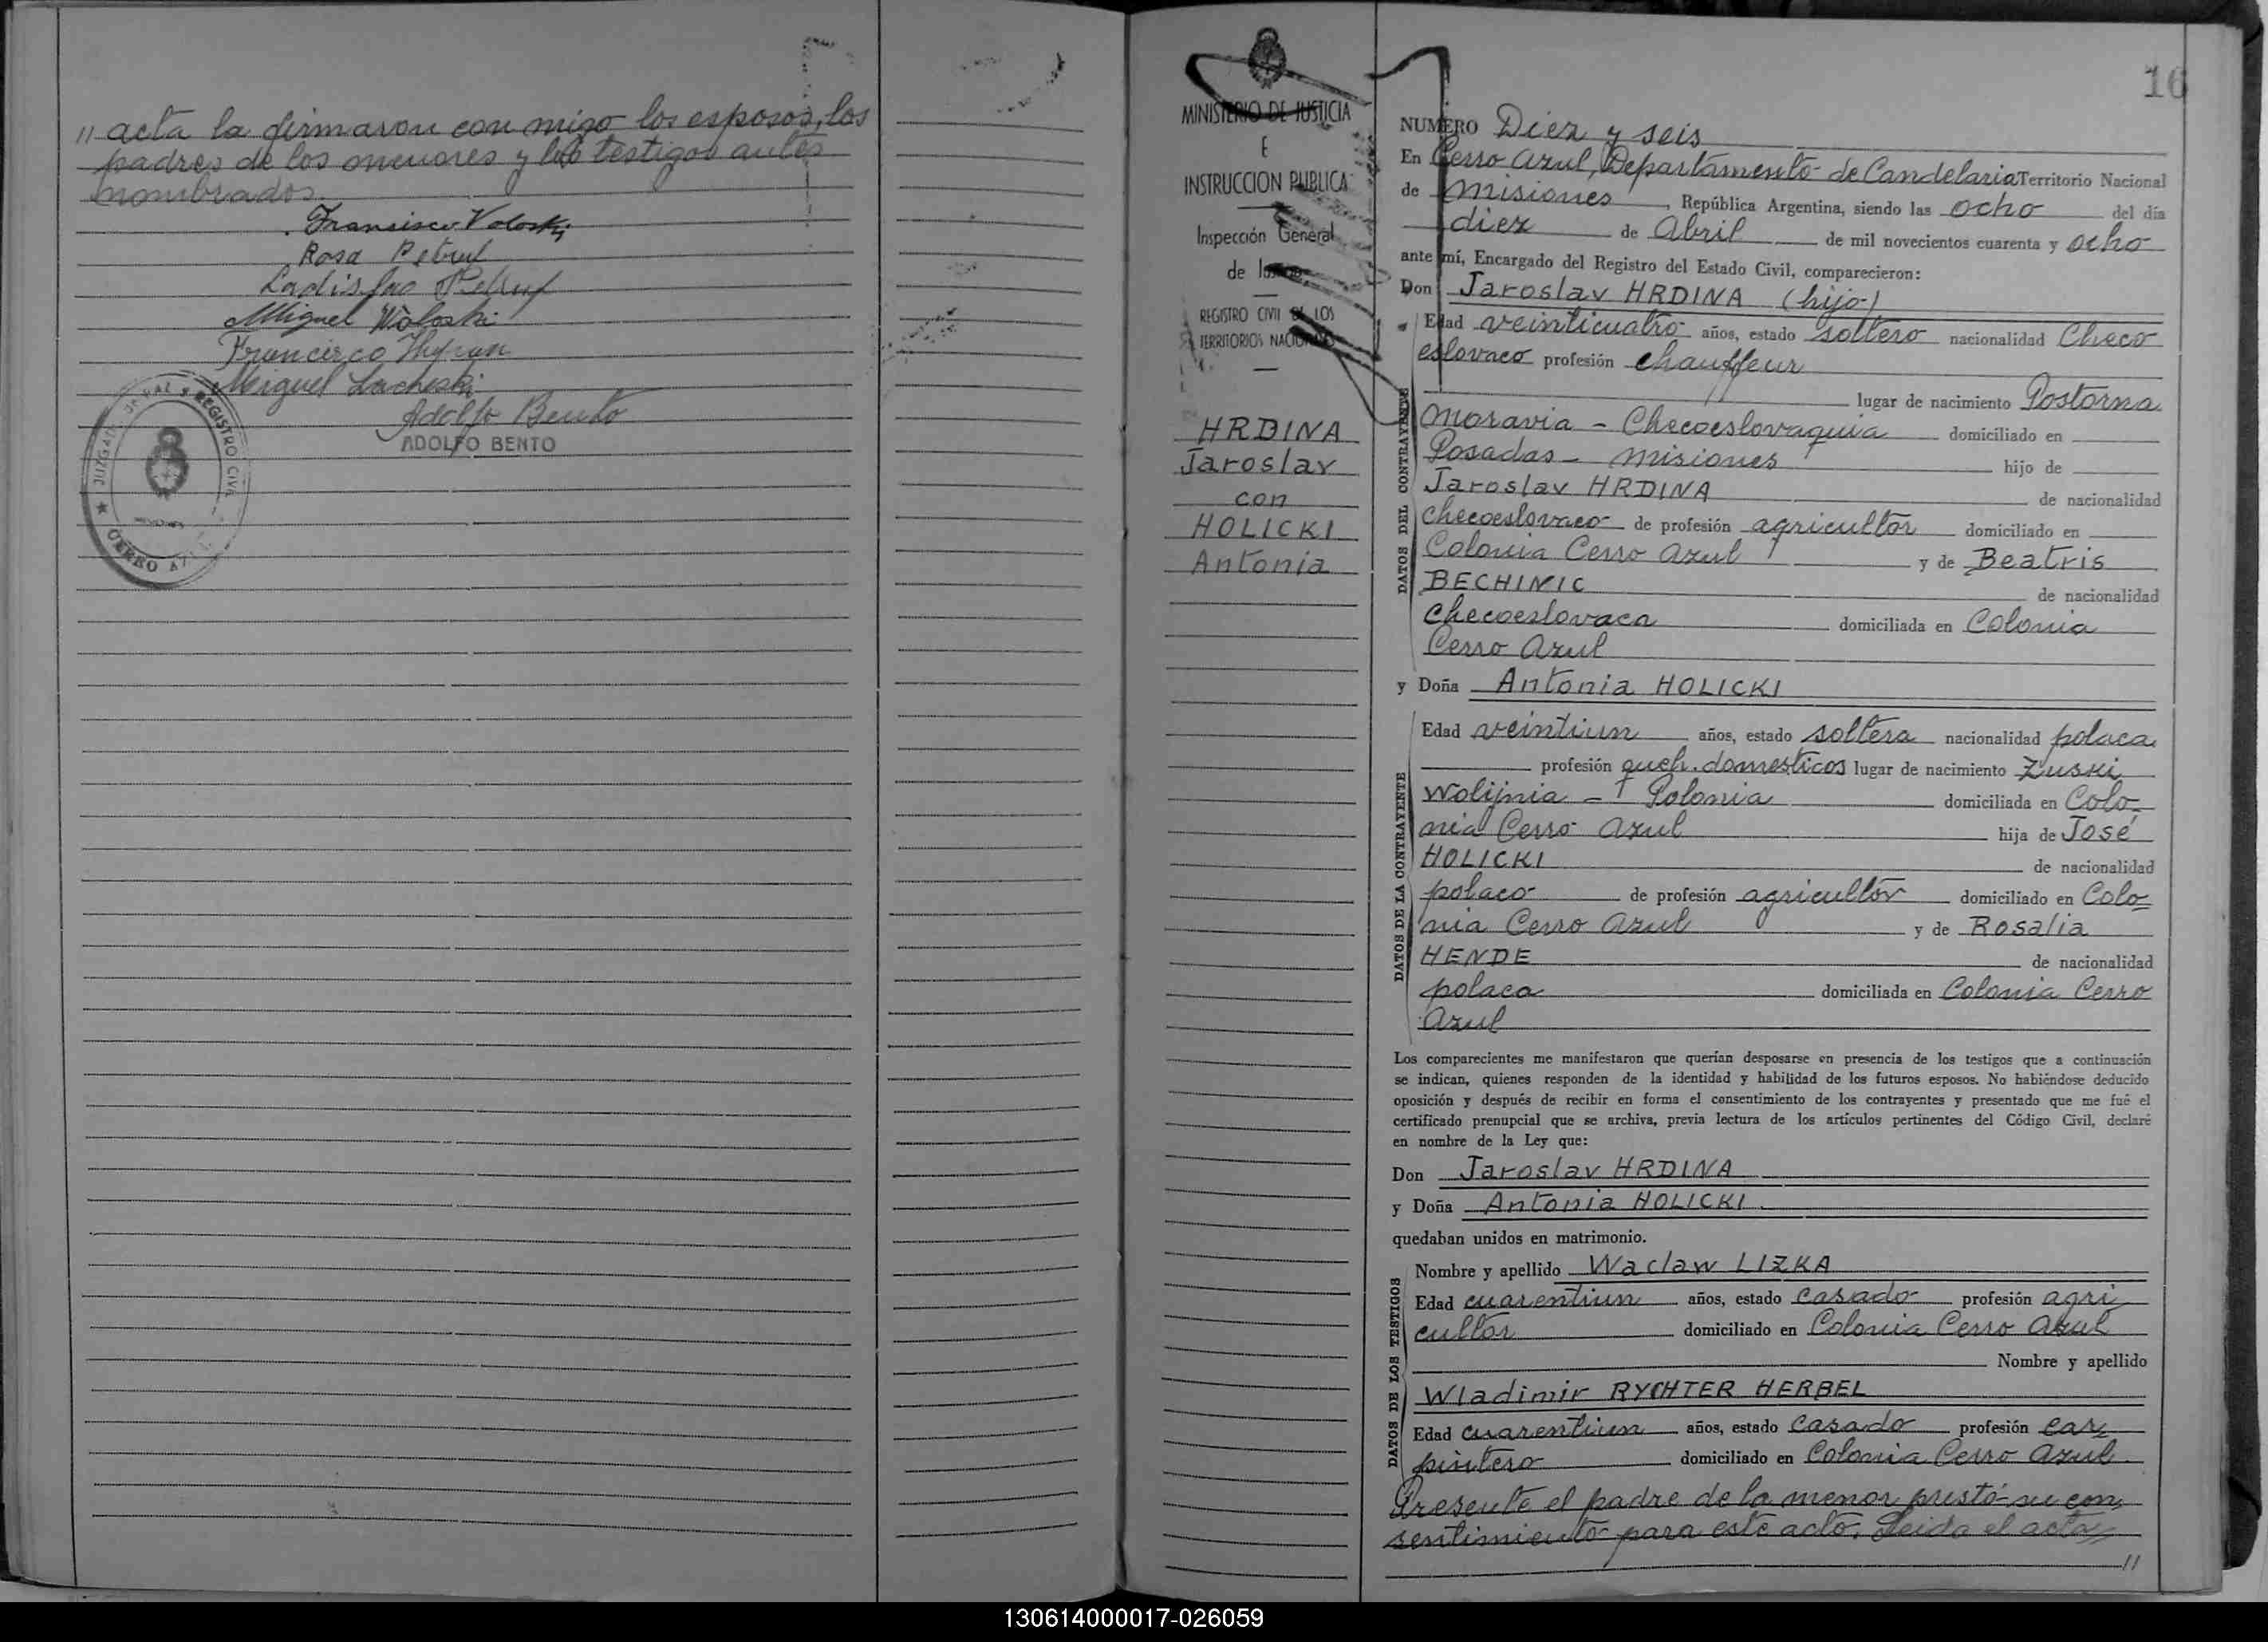 // acta la firmaron con migo los esposos, los
padres de los menores y los testigos antes
nombrados.
Francisco Voloski
Rosa Petruf
Ladislao Petruf
Miguel Woloski
Francisco
Miguel
Adolfo Bento
ADOLFO BENTO
REGISTRO CIVIL
CERRO AZUL
MINISTERIO DE JUSTICIA
E
INSTRUCCION PUBLICA
Inspección General
de
REGISTRO CIVIL DE LOS
TERRITORIOS NACIONALES
HRDINA
Jaroslav
con
HOLICKI
Antonia
16
NUMERO Diez y seis
En Cerro Azul, Departamento de Candelaria Territorio Nacional
de Misiones, República Argentina, siendo las ocho del día
diez de Abril de mil novecientos cuarenta y ocho
ante mí, Encargado del Registro del Estado Civil, comparecieron:
Don Jaroslav HRDINA (hijo)
DATOS DEL CONTRAYENTE
Edad veinticuatro años, estado soltero nacionalidad Checo
eslovaco profesión chauffeur
lugar de nacimiento Postorna
Moravia - Checoeslovaquia domiciliado en
Posadas - Misiones hijo de
Jaroslav HRDINA de nacionalidad
checoeslovaco de profesión agricultor domiciliado en
Colonia Cerro Azul y de Beatris
BECHINIC de nacionalidad
checoeslovaca domiciliada en Colonia
Cerro Azul
y Doña Antonia HOLICKI
DATOS DE LA CONTRAYENTE
Edad veintiun años, estado soltera nacionalidad polaca
profesión queh. domesticos lugar de nacimiento Zuski
Wolijnia - Polonia domiciliada en Colo-
nia Cerro Azul hija de José
HOLICKI de nacionalidad
polaco de profesión agricultor domiciliado en Colo=
nia Cerro Azul y de Rosalia
HENDE de nacionalidad
polaca domiciliada en Colonia Cerro
Azul
Los comparecientes me manifestaron que querían desposarse en presencia de los testigos que a continuación
se indican, quienes responden de la identidad y habilidad de los futuros esposos. No habiéndose deducido
oposición y después de recibir en forma el consentimiento de los contrayentes y presentado que me fué el
certificado prenupcial que se archiva, previa lectura de los artículos pertinentes del Código Civil, declaré
en nombre de la Ley que:
Don Jaroslav HRDINA
y Doña Antonia HOLICKI
quedaban unidos en matrimonio.
DATOS DE LOS TESTIGOS
Nombre y apellido Waclaw LIZKA
Edad cuarentiun años, estado casado profesión agri
cultor domiciliado en Colonia Cerro Azul
Nombre y apellido
Wladimir RYCHTER HERBEL
Edad cuarentiun años, estado casado profesión car=
pintero domiciliado en Colonia Cerro Azul
Presente el padre de la menor prestó su con=
sentimiento para este acto. Leida el acta
//
130614000017-026059